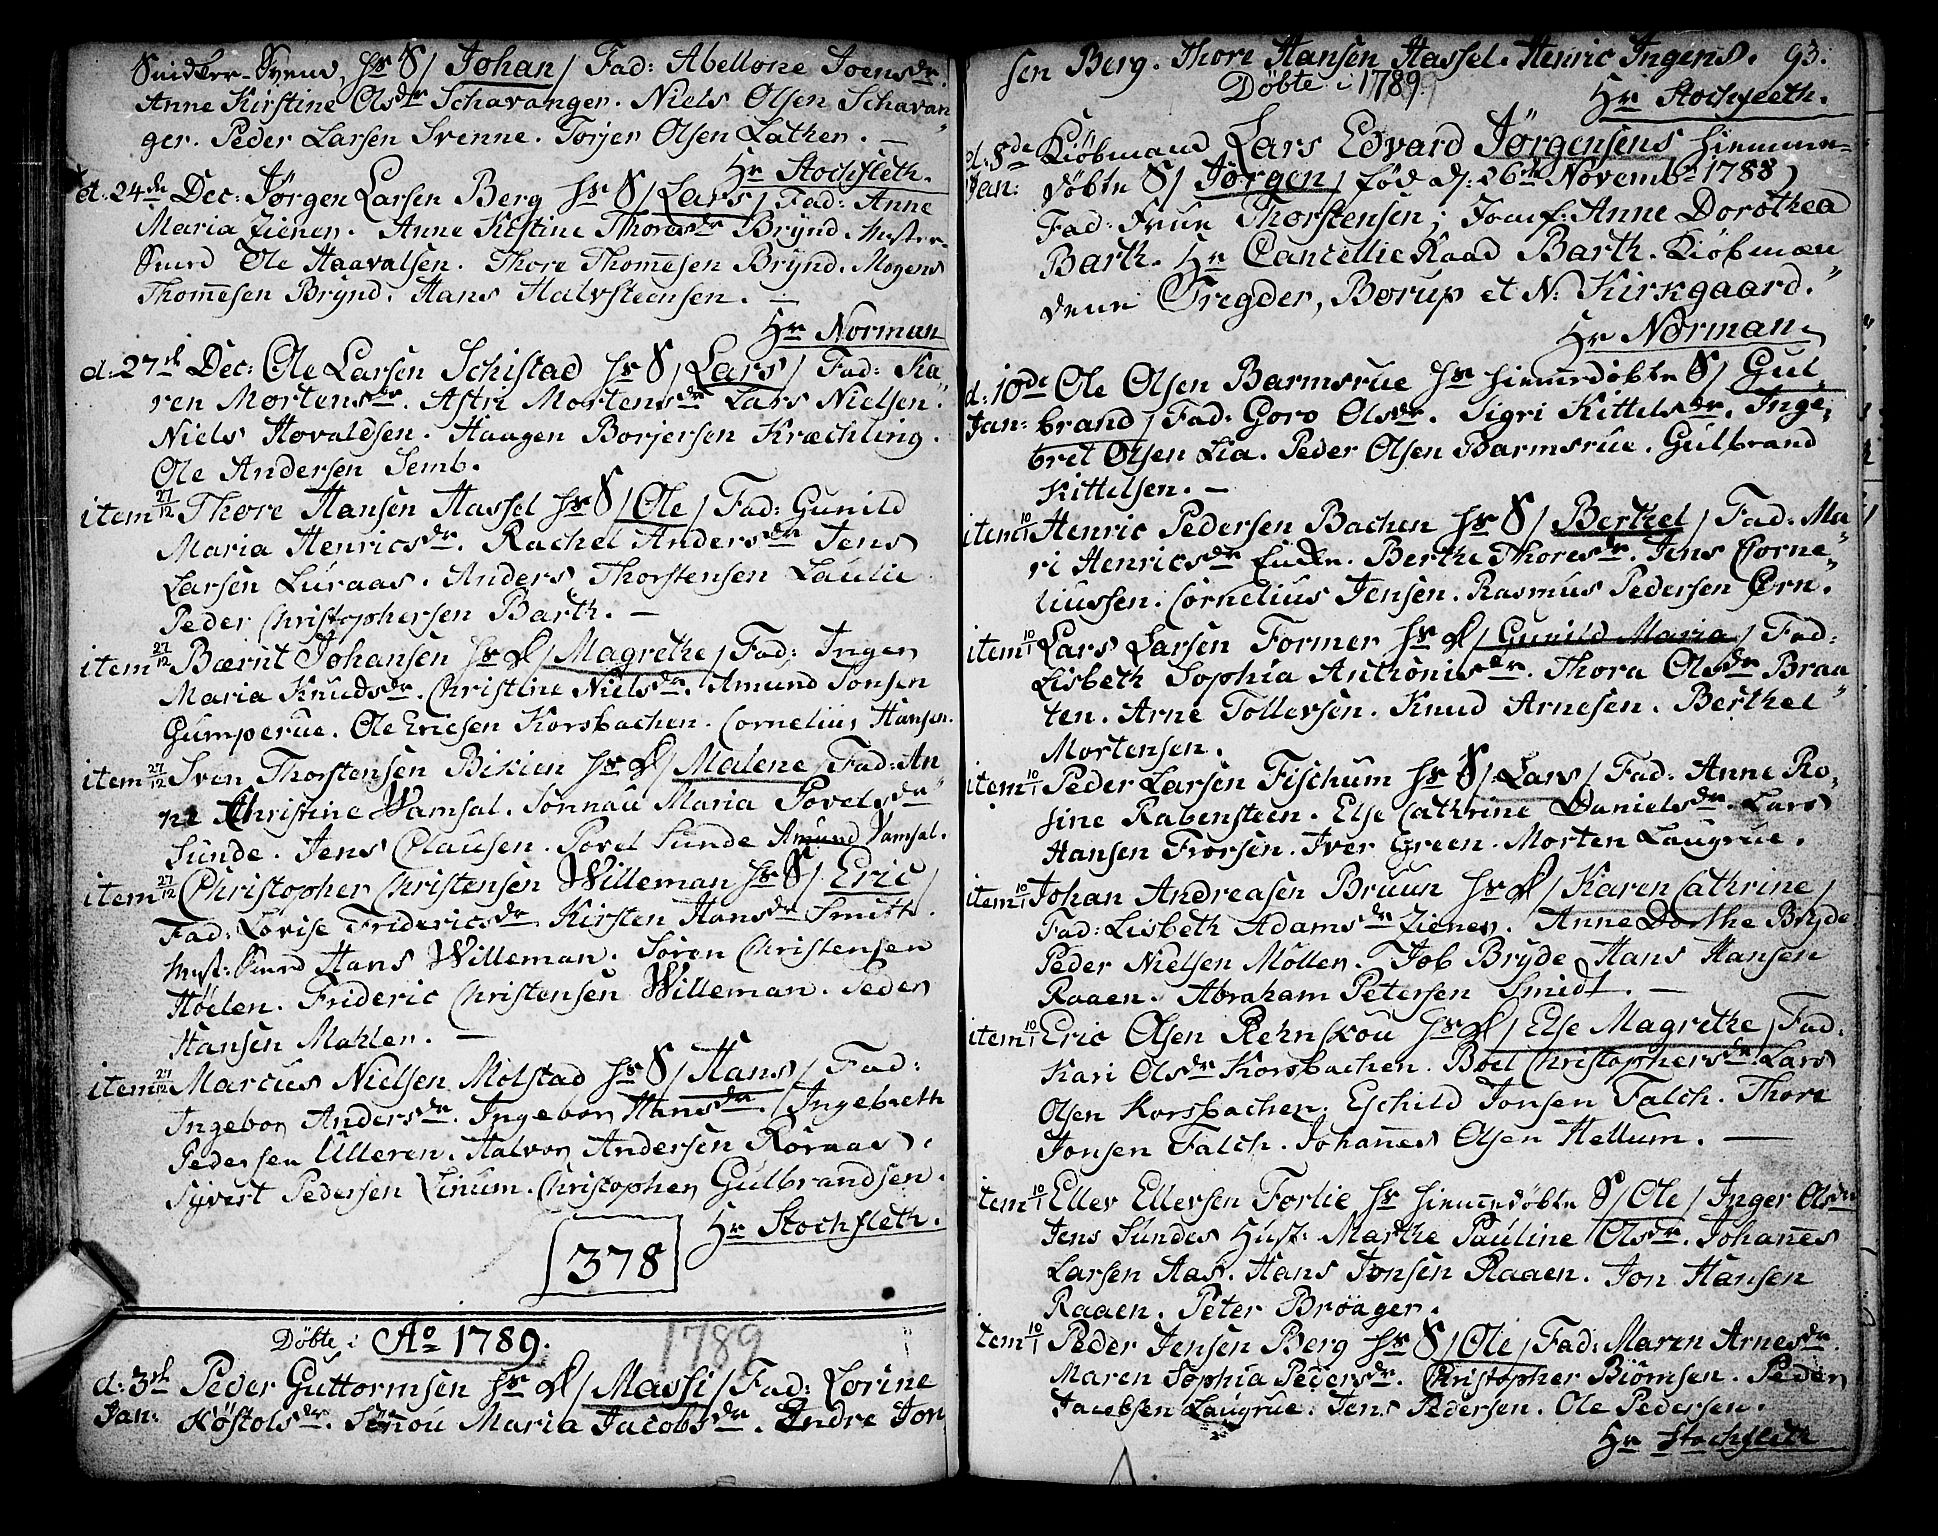 Snidker-Svend, Hr S/ Johan/ Fad: Abellone Joensdr.
Anne Kirstine Olsdr Schavanger. Niels Olsen Schavan"
ger. Peder Larsen Svenne. Torjer Olsen Lather. —
Hr Stochfleth.
d: 24de Dec: Jørgen Larsen Berg Hr S/ Lars/ Fad: Anne
Maria Ziener. Anne Kistine Thoresdr Brÿnd. Mester-
Smed Ole Haavalsen. Thore Thom̄esen Brÿnd. Mogens
Thom̄esen Brÿnd. Hans Halvsteensen. —
Hr Norman
d: 27de Dec: Ole Larsen Schistad Hr S/ Lars/ Fad: Ka"
ren Mortensdr. Astri Mortensdr Lars Nielsen.
Niels Hovaldsen. Haagen Borjersen Kræchling.
Ole Andersen Semb.
item 27/12 Thore Hansen Hassel Hr S/ Ole/ Fad: Gunild
Maria Henricsdr. Rachel Andersdr Jens
Larsen Luraas. Anders Thorstensen Laulie
Peder Christophersen Barth. —
item 27/12 Bærnt Johansen Hr D/ Magrethe/ Fad: Inger
Maria Knudsdr. Christine Nielsdr. Amund Jonsen
Gumperue. Ole Ericsen Korsbachen. Cornelius Hansen.
item 27/12 Sven Thorstensen Bikien Hr D/ Malene/ Fad: An"
ne Christine Wamsal. Sonnau Maria Povelsdr
Sunde. Jens Clausen. Povel Sunde Amund Vamsal.
item 27/12 Christopher Christensen Willeman Hr S/ Eric/
Fad: Lovise Fridericsdr Kirsten Hansdr Smith.
Mest: Smed Hans Willeman. Søren Christensen
Høelen. Frideric Christensen Willeman. Peder
Hansen Mahler. —
item 27/12 Marcus Nielsen Molstad Hr S/ Hans/ Fad:
Ingebor Andersdr. Ingebor Hansdr. Ingebreth
Pedersen Ulleren. Halvor Andersen Røraas.
Syvert Pedersen Linum. Christopher Gulbrandsen.
Hr Stochfleth.
378
Døbte i Ao 1789.
1789
d: 3de Peder Guttormsen Hr D/ Massi/ Fad: Lorine
Jan: Køstolsdr. Sen̄ou Maria Jacobsdr. Endre Jon
sen Berg. Thore Hansen Hassel. Henric Ingens. 93.
Døbte i 1789
Hr Stochfleth.
d: 8de Kiøbmand Lars Edvard Jørgensens hiemme=
Jan: døbte S/ Jørgen/ fød d: 26de Novembr 1788)
Fad: Frue Thorstensen; Jomf: Anne Dorothea
Barth. Hr Cancellie Raad Barth. Kiøbmæn
dene Tregder, Borup et N: Kirkgaard."
Hr Norman
d: 10de Ole Olsen Barmsrue Hr hiem̄edøbte S/ Gul"
Jan: brand/ Fad: Goro Olsdr. Sigri Kittelsdr. Inge"
bret Olsen Lia. Peder Olsen Barmsrue. Gulbrand
Kittelsen. —
item 10/1 Henric Pedersen Bachen Hr S/ Berthel/ Fad: Ma"
ri Henricsdr Enke. Berthe Thoresdr. Jens Corne"
liussen. Cornelius Jensen. Rasmus Pedersen Ørn."
item 10/1 Lars Larsen Former Hr D/ Gunild Maria/ Fad:
Lisbeth Sophia Anthonisdr. Thora Olsdr Braa
ten. Arne Tollersen. Knud Arnesen. Berthel"
Mortensen.
item 10/1 Peder Larsen Fischum Hr S/ Lars/ Fad: Anne Ro"
sine Rabensteen. Else Cathrine Danielsdr. Lars
Hansen Frorsen. Iver Green. Morten Laugrue.
item 10/1 Johan Andreasen Bruun Hr D/ Karen Cathrine/
Fad: Lisbeth Adamsdr Ziener. Anne Dorthe Bryde
Peder Nielsen Møller. Job Bryde Hans Hansen
Raaen. Abraham Petersen Smidt. —
item 10/1 Eric Olsen Rehnskou Hr D/ Else Magrethe/ Fad:
Kari Olsdr Korsbachen. Boel Christophersdr Lars
Olsen Korsbachen. Eschild Jonsen Falch. Thore
Jonsen Falch. Johan̄es Olsen Hellum. —
item 10/1 Eller Ellersen Forlie Hr hiem̄edøbte S/ Ole/ Inger Olsdr
Jens Sundes Hust: Marthe Pauline Olsdr. Johan̄es
Larsen Aas. Hans Jonsen Raaen. Jon Hansen
Raaen. Peter Brøager.
item 10/1 Peder Jensen Berg Hr S/ Ole/ Fad: Maren Arnesdr.
Maren Sophia Pedersdr. Christopher Biørnsen. Peder
Jacobsen Laugrue. Jens Pedersen. Ole Pedersen.
Hr Stochfleth